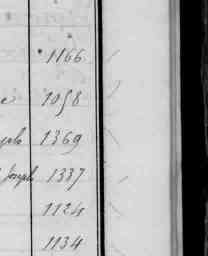 1166
1058
1369
Joseph 1337
1124
1134